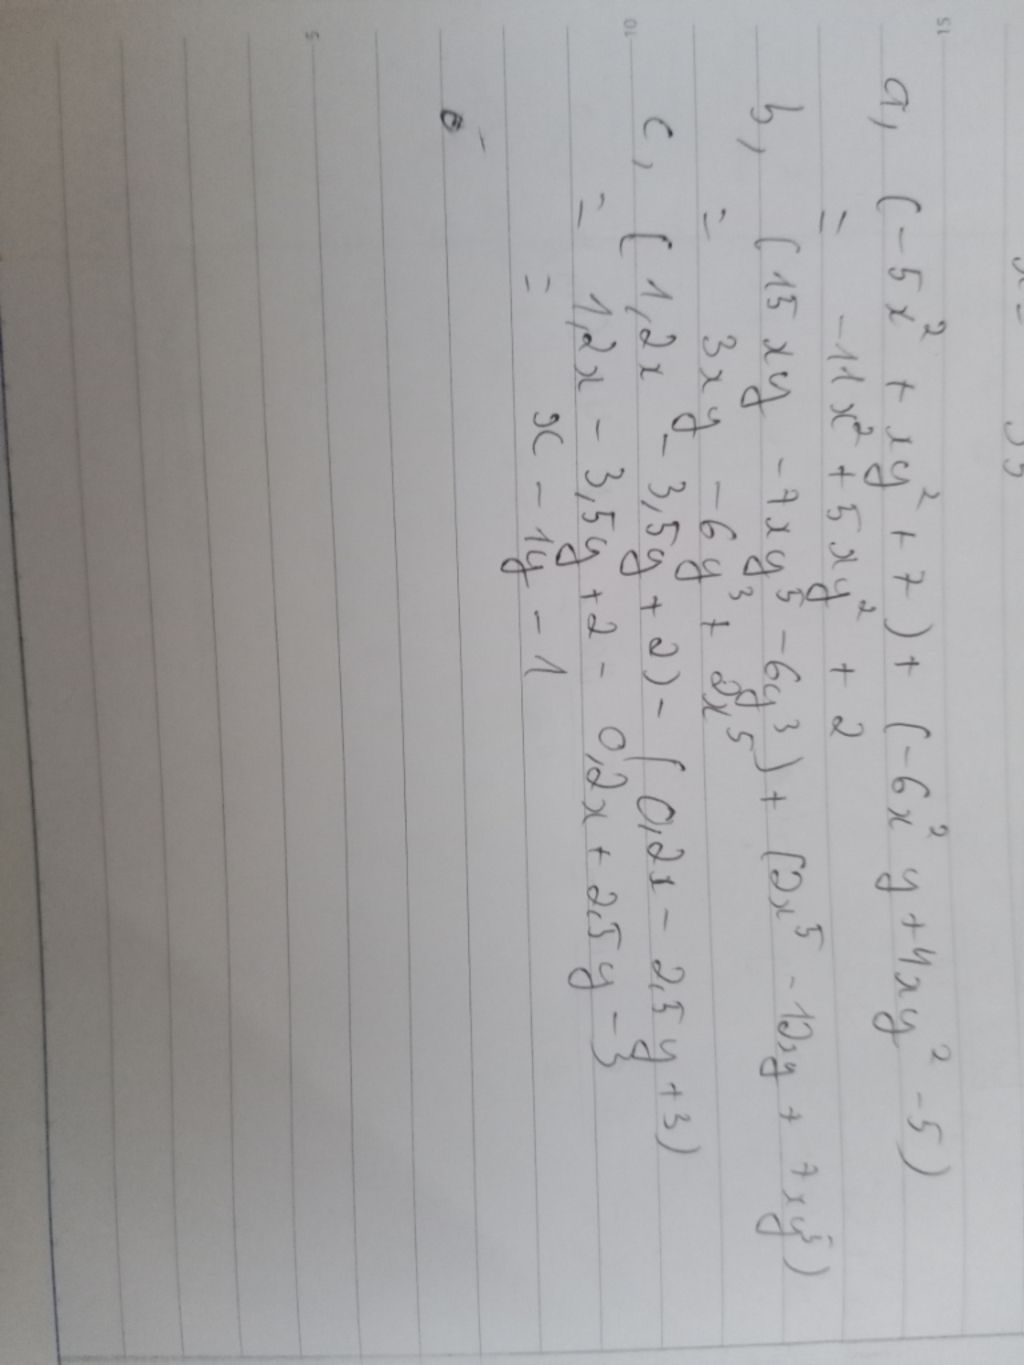 15
a, (-5x² + xy² + 7) + (-6x²y + 4xy² - 5)
= -11x² + 5xy² + 2
b, (15xy - 7xy⁵ - 6y³) + (2x⁵ - 12xy + 7xy⁵)
= 3xy - 6y³ + 2x⁵
10
c, (1,2x - 3,5y + 2) - (0,2x - 2,5y + 3)
= 1,2x - 3,5y + 2 - 0,2x + 2,5y - 3
= x - 1y - 1
5